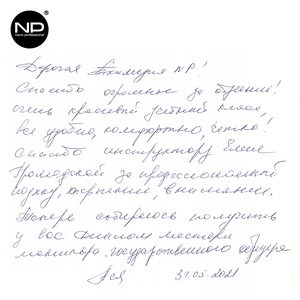 NP
nano professional
Дорогая Академия NP!
Спасибо огромное за обучение!
очень красивый учебный класс,
все удобно, комфортно, четко!
Спасибо инструктору Елене
за профессиональный
подход, терпение, внимание.
Теперь собираюсь получить
у вас диплом мастера
маникюра государственного образца
Ася 31.05.2021